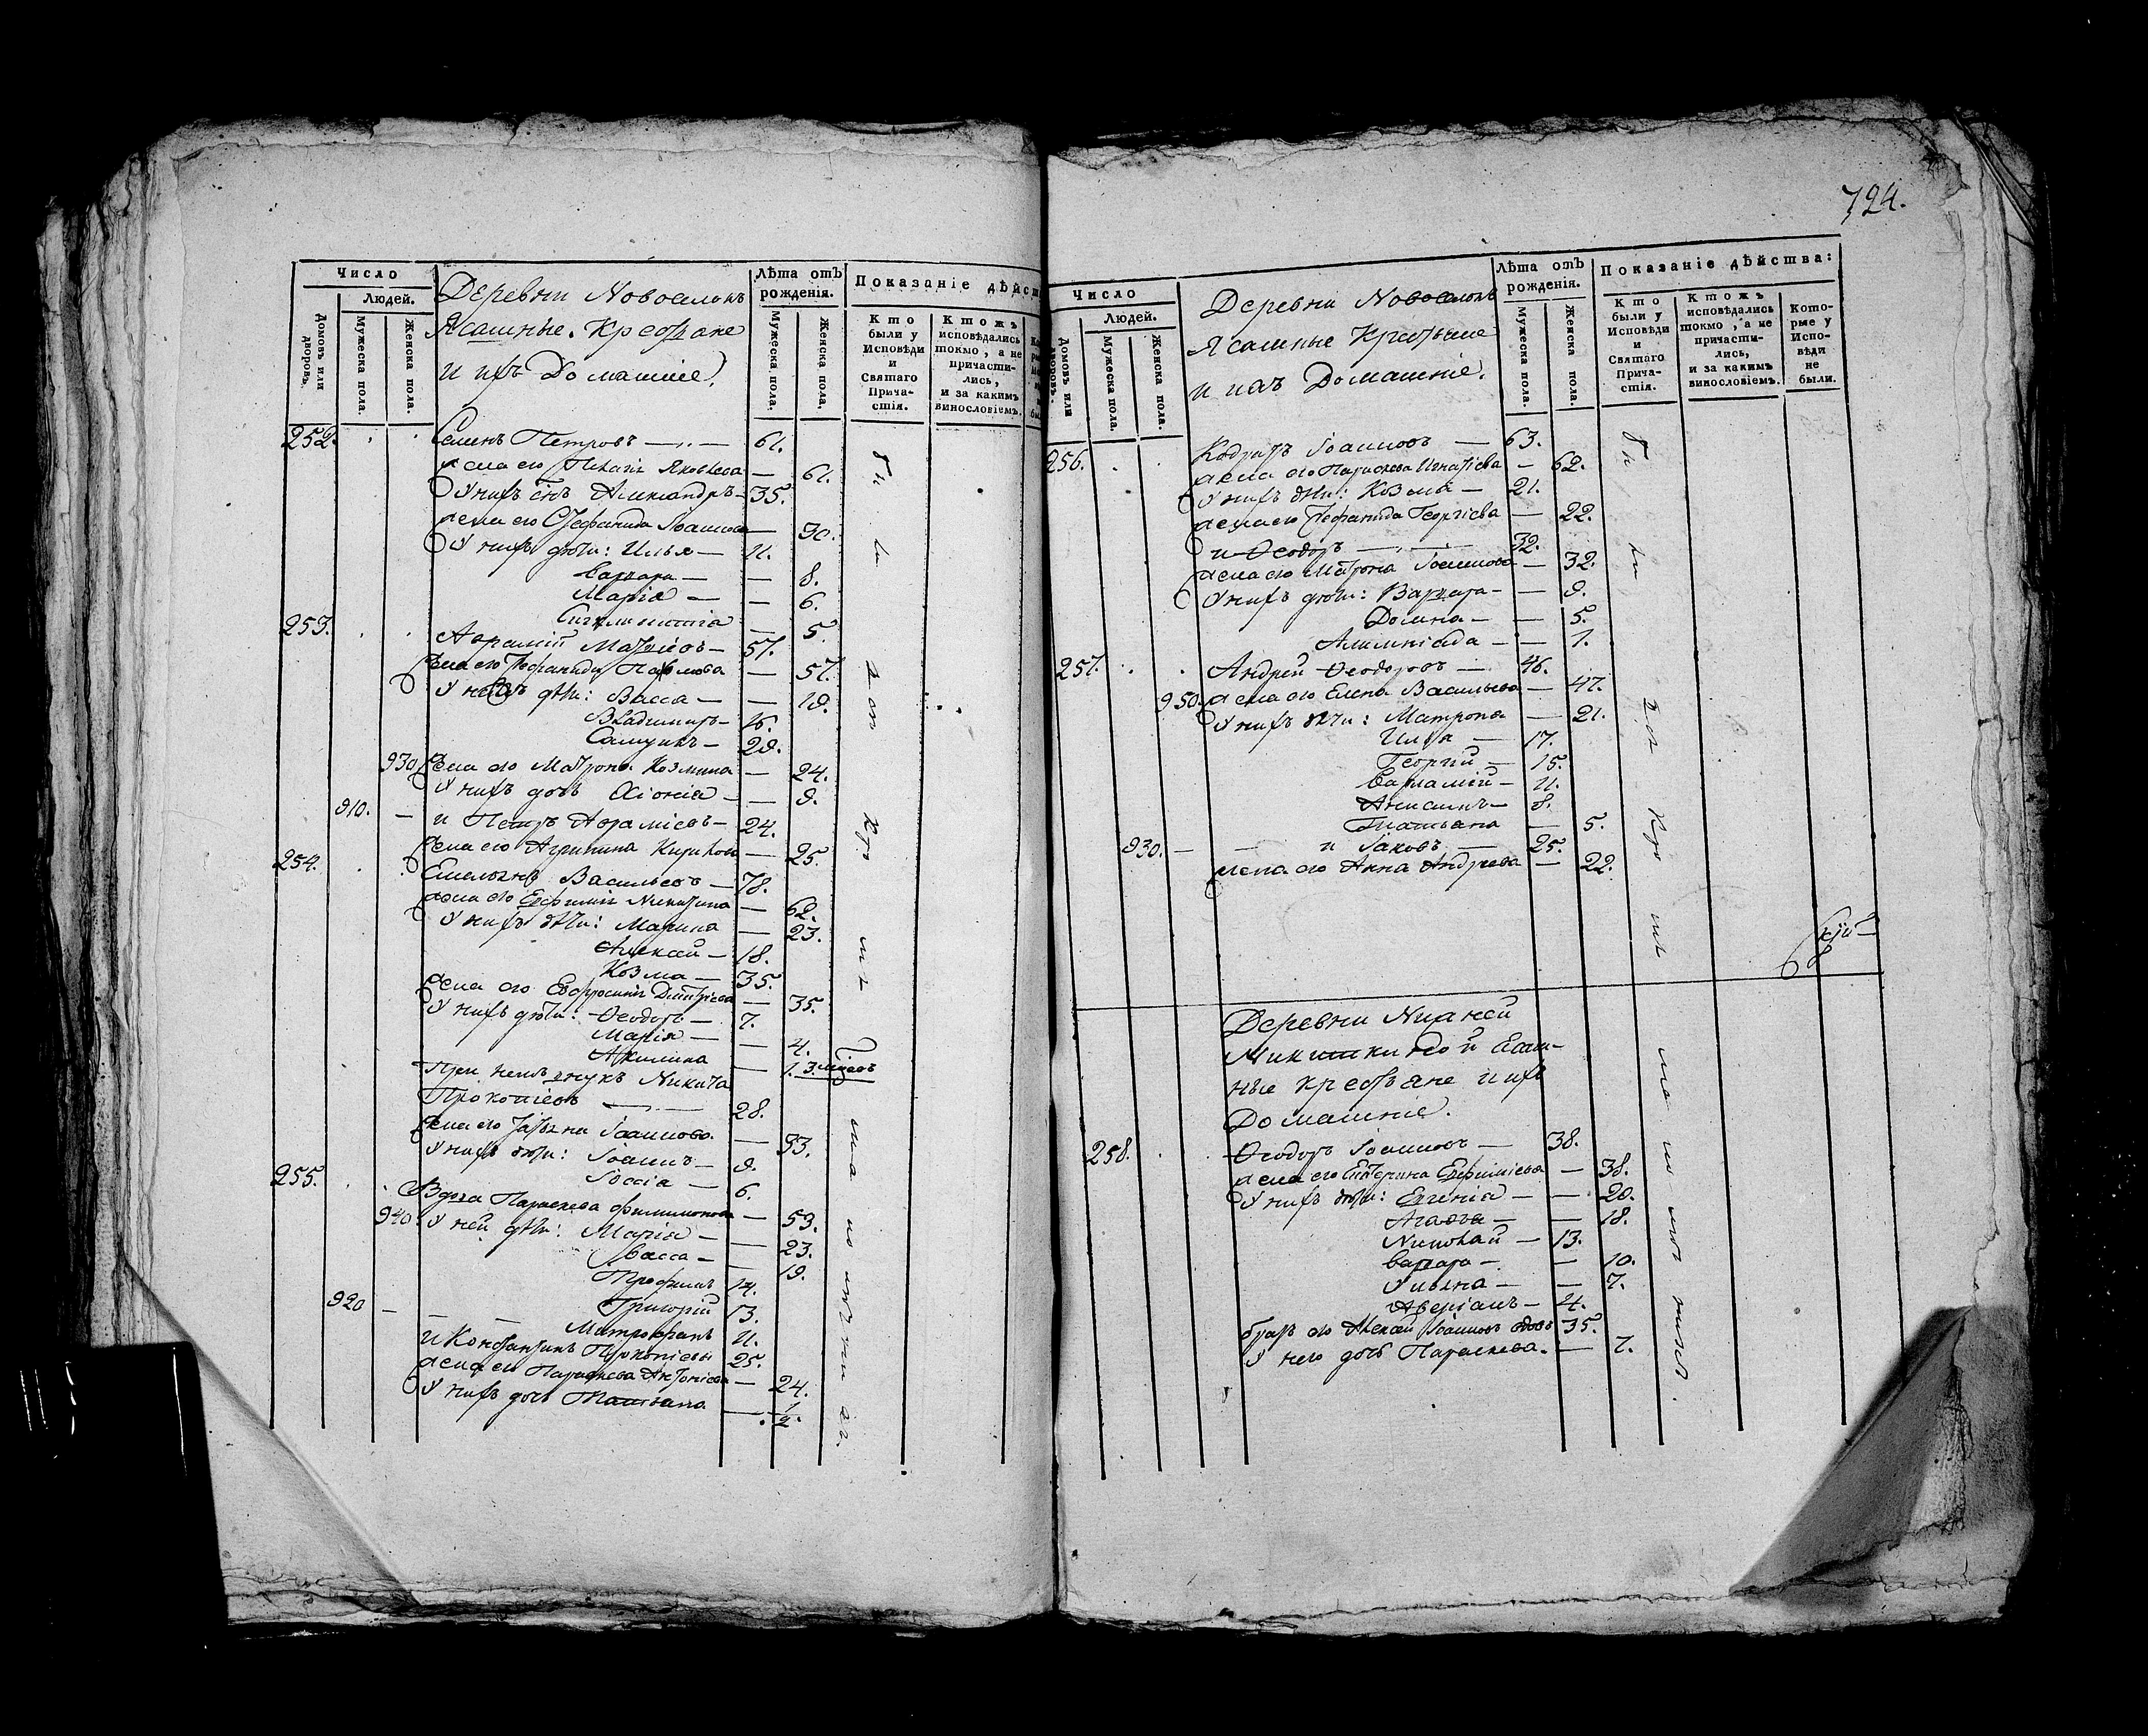 Число
Людей.
Домовъ или дворовъ.
Мужеска пола.
Женска пола.
Деревни Новоселокъ
Ясашные Крестьяне
и ихъ Домашніе.
Лѣта отъ рожденія.
Мужеска пола.
Женска пола.
Показаніе дѣйст
Кто были у Исповѣди и Святаго Прича-стія.
Ктожъ исповѣдались токмо, а не причасти-лись, и за какимъ винословіемъ.
252. Семенъ Петровъ — 61.
жена его Яковлева — 61.
У нихъ снъ Александръ — 35.
жена его Стефанида Іоаннова — 30.
У нихъ дѣти: Илья — 11.
Варвара — — 8.
Марія — — 6.
— 5.
253. Аврамій — 57.
жена его Павлова — 57.
У нихъ дѣти: Васса — — 19.
Владимиръ — 16.
29.
930. жена его Матрона Козмина — 24.
У нихъ дочь Хіонія — — 9.
910. — и Петръ Аврамиевъ — 24.
жена его Агрипина — 25.
254. Емельянъ Васильевъ — 78.
жена его Евфимія Никитина — 62.
У нихъ дѣти: Марина — 23.
Алексай — 18.
Козма — 35.
жена его Евфросинія Дмитріева — 35.
У нихъ дѣти: Ѳеодоръ — 7.
Марія — — 4.
Акилина — 1.
При немъ внукъ Никита
Прокопіевъ — 28.
жена его Татьяна Іоаннова — 33.
У нихъ дѣти: Іоаннъ — 9.
6.
255. Вдова Параскева Филимонова — 53.
940. У ней дѣти: Марія — — 23.
Васса — — 19.
Трофимъ 14.
920 — Григорій 13.
Митрофанъ 11.
и Константинъ Прокопіевъ 25.
жена его Параскева Антонieва — 24.
У нихъ дочь Татьяна — 1/2.
724.
Число
Людей.
Домовъ или дворовъ.
Мужеска пола.
Женска пола.
Деревни Новоселокъ
Ясашные Крестьяне
и ихъ Домашніе.
Лѣта отъ рожденія.
Мужеска пола.
Женска пола.
Показаніе дѣйства:
Кто были у Исповѣди и Святаго Прича-стія.
Ктожъ исповѣдались токмо, а не причасти-лись, и за какимъ винословіемъ.
Кото-рые у Испо-вѣди не были.
256. Кодратъ Іоанновъ — 63.
жена его Параскева Игнатіева — 62.
У нихъ дѣти: Козма — 21.
жена его Георгіева — 22.
и Ѳеодоръ — 32.
жена его Матрона Іоаннова — 32.
У нихъ дѣти: Варвара — — 9.
Домна — — 5.
— 1.
257. Андрей Ѳеодоровъ — 46.
950. жена его Елена Васильева — 47.
У нихъ дѣти: Матрона — 21.
Илья — 17.
Георгий — 15.
Варламій — 11.
Анисимъ — 8.
Татьяна — 5.
930. — — и Іаковъ — 25.
жена его Анна Андреева — 22.
Деревни Нижней
Микишкиндой Ясаш-
ные крестьяне и ихъ
Домашніе.
258. Ѳеодоръ Іоанновъ — 38.
жена его Екатерина Евфиміева — 38.
У нихъ дѣти: Евгенія — — 20.
Агафья — — 18.
Николай — 13.
Варвара — — 10.
Ульяна — — 7.
Аверіанъ — 4.
братъ его Алексай Іоанновъ вдовъ 35.
У него дочь Параскева — 7.